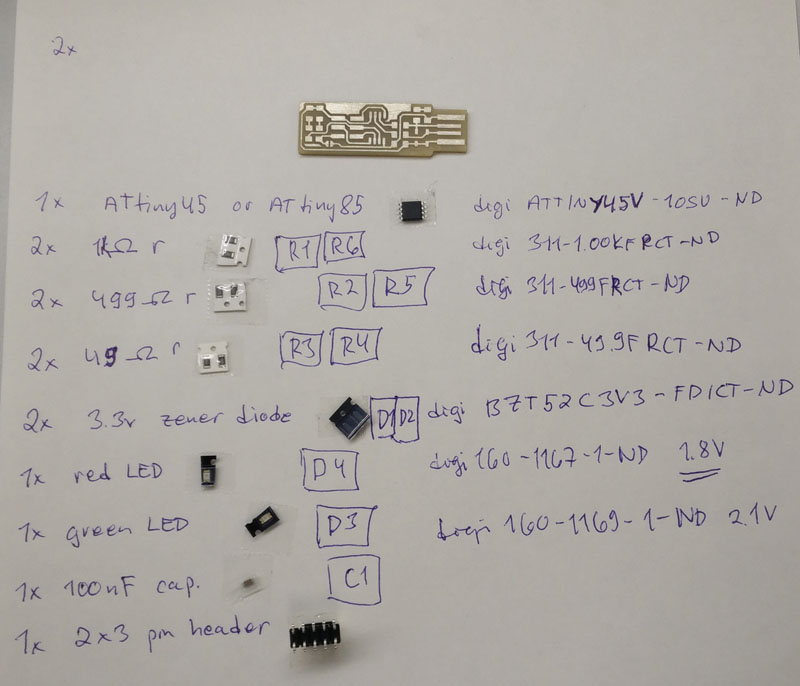 2x
1x ATtiny45 or ATtiny85 digi ATTINY45V-10SU-ND
2x 1kΩ r R1 R6 digi 311-1.00KFRCT-ND
2x 499Ω r R2 R5 digi 311-499FRCT-ND
2x 49Ω r R3 R4 digi 311-49.9FRCT-ND
2x 3.3v zener diode D1 D2 digi BZT52C3V3-FDICT-ND
1x red LED D4 digi 160-1167-1-ND 1.8V
1x green LED D3 digi 160-1169-1-ND 2.1V
1x 100nF cap. C1
1x 2x3 pin header